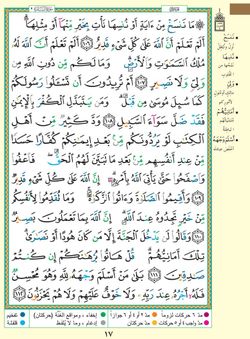 ۞ مَا نَنسَخْ مِنْ ءَايَةٍ أَوْ نُنسِهَا نَأْتِ بِخَيْرٍ مِّنْهَآ أَوْ مِثْلِهَآ
أَلَمْ تَعْلَمْ أَنَّ ٱللَّهَ عَلَىٰ كُلِّ شَىْءٍ قَدِيرٌ ١٠٦ أَلَمْ تَعْلَمْ أَنَّ ٱللَّهَ لَهُۥ
مُلْكُ ٱلسَّمَـٰوَٰتِ وَٱلْأَرْضِ ۗ وَمَا لَكُم مِّن دُونِ ٱللَّهِ مِن
وَلِىٍّ وَلَا نَصِيرٍ ١٠٧ أَمْ تُرِيدُونَ أَن تَسْـَٔلُوا۟ رَسُولَكُمْ
كَمَا سُئِلَ مُوسَىٰ مِن قَبْلُ ۗ وَمَن يَتَبَدَّلِ ٱلْكُفْرَ بِٱلْإِيمَـٰنِ
فَقَدْ ضَلَّ سَوَآءَ ٱلسَّبِيلِ ١٠٨ وَدَّ كَثِيرٌ مِّنْ أَهْلِ
ٱلْكِتَـٰبِ لَوْ يَرُدُّونَكُم مِّنۢ بَعْدِ إِيمَـٰنِكُمْ كُفَّارًا حَسَدًا
مِّنْ عِندِ أَنفُسِهِم مِّنۢ بَعْدِ مَا تَبَيَّنَ لَهُمُ ٱلْحَقُّ ۖ فَٱعْفُوا۟
وَٱصْفَحُوا۟ حَتَّىٰ يَأْتِىَ ٱللَّهُ بِأَمْرِهِۦٓ ۗ إِنَّ ٱللَّهَ عَلَىٰ كُلِّ شَىْءٍ قَدِيرٌ
١٠٩ وَأَقِيمُوا۟ ٱلصَّلَوٰةَ وَءَاتُوا۟ ٱلزَّكَوٰةَ ۚ وَمَا تُقَدِّمُوا۟ لِأَنفُسِكُم
مِّنْ خَيْرٍ تَجِدُوهُ عِندَ ٱللَّهِ ۗ إِنَّ ٱللَّهَ بِمَا تَعْمَلُونَ بَصِيرٌ
١١٠ وَقَالُوا۟ لَن يَدْخُلَ ٱلْجَنَّةَ إِلَّا مَن كَانَ هُودًا أَوْ نَصَـٰرَىٰ ۗ
تِلْكَ أَمَانِيُّهُمْ ۗ قُلْ هَاتُوا۟ بُرْهَـٰنَكُمْ إِن كُنتُمْ
صَـٰدِقِينَ ١١١ بَلَىٰ مَنْ أَسْلَمَ وَجْهَهُۥ لِلَّهِ وَهُوَ مُحْسِنٌ
فَلَهُۥٓ أَجْرُهُۥ عِندَ رَبِّهِۦ وَلَا خَوْفٌ عَلَيْهِمْ وَلَا هُمْ يَحْزَنُونَ ١١٢
مدّ ٦ حركات لزوماً مدّ ٢ أو ٤ أو ٦ جوازاً إخفاء، ومواقع الغنّة (حركتان) تفخيم
مدّ واجب ٤ أو ٥ حركات مدّ حركتان إدغام، وما لا يُلفظ قلقلة
١٧